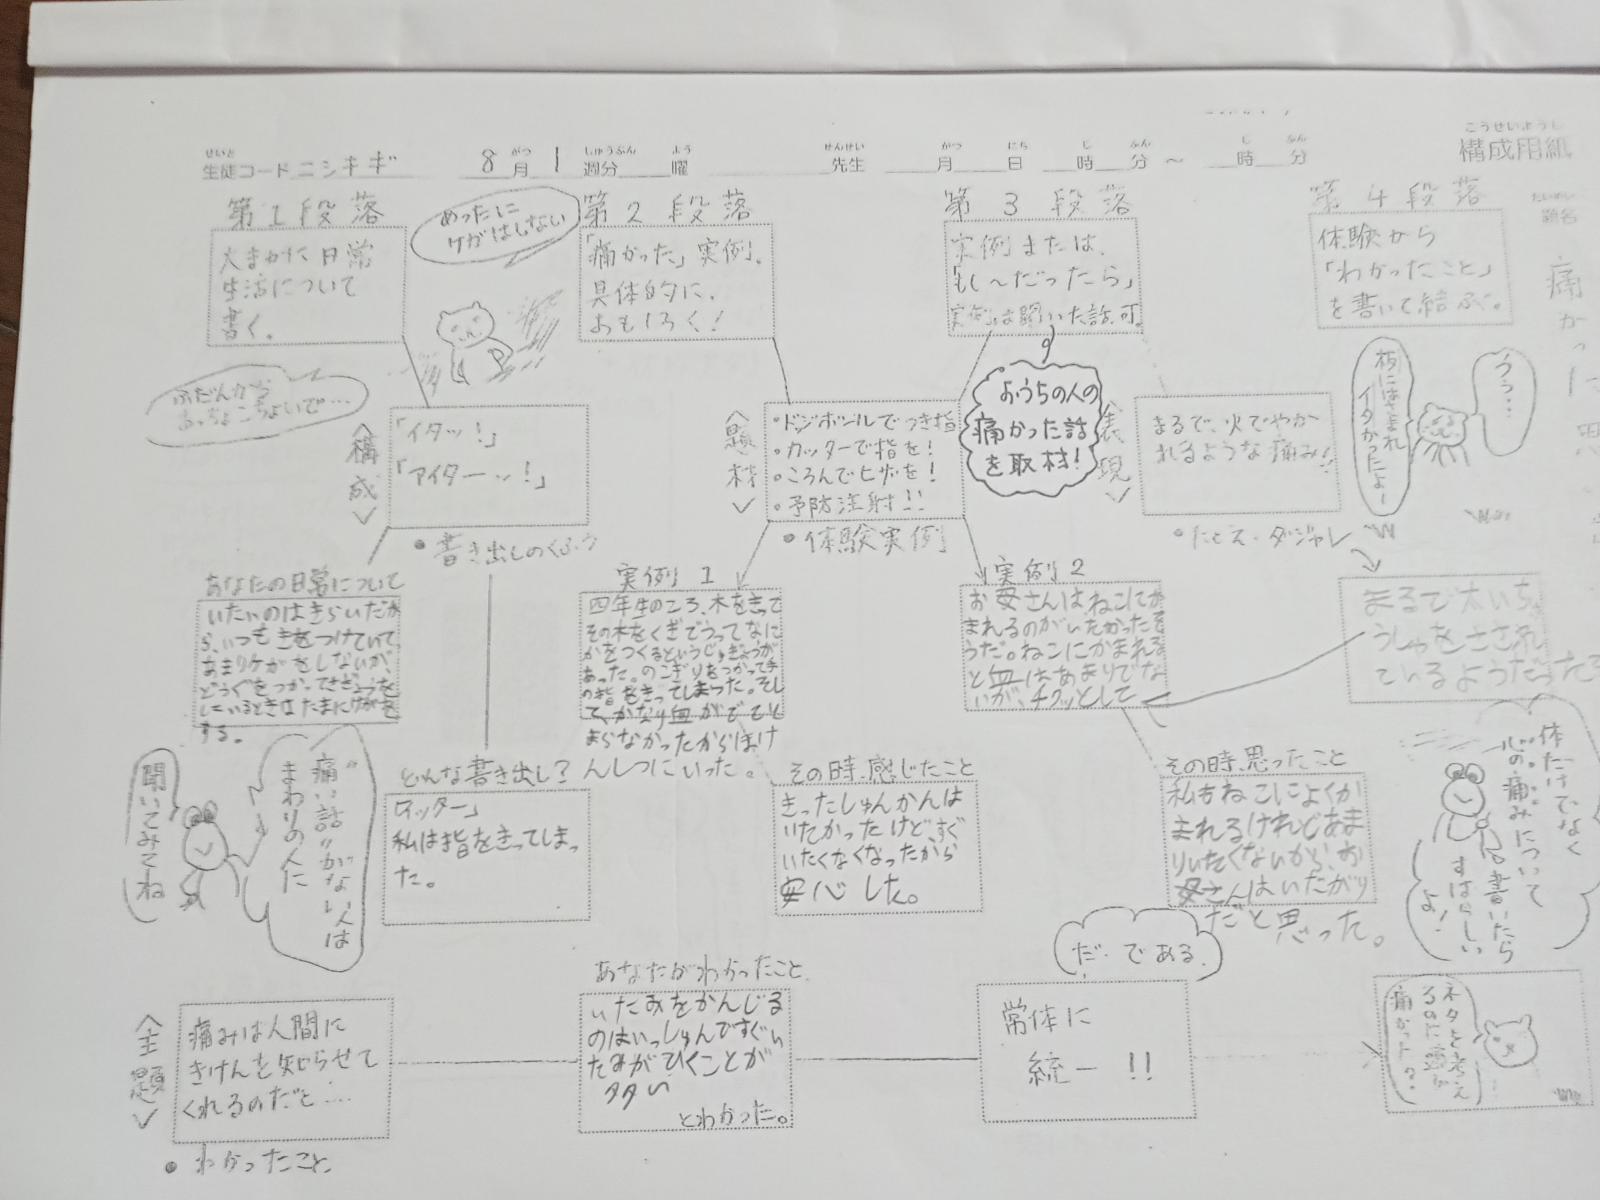 こうせいようし
構成用紙
せいと
生徒コード ニシキギ
8月 1週分 曜
がつ しゅうぶん よう
せんせい
先生
がつ にち じ ふん
月 日 時 分 ~ 時 分
だいめい
題名
第1段落
大まかに日常
生活について
書く。
めったに
ケガはしない
第2段落
「痛かった」実例。
具体的に、
おもしろく!
第3段落
実例または、
「もし~だったら」
実例は聞いた話可。
第4段落
体験から
「わかったこと」
を書いて結ぶ。
ふだんから
おっちょこちょいで…
<構成>
「イタッ!」
「アイターッ!」
・書き出しのくふう
<題材>
・ドッジボールでつき指
・カッターで指を!
・ころんでヒザを!
・予防注射!!
・体験実例
おうちの人の
痛かった話
を取材!
<表現>
まるで、火でやか
れるような痛み!
・たとえ・ダジャレ
板にはさまれ
イタかったよー
うぅ…
あなたの日常について
いたいのはきらいだか
ら、いつも きをつけていて、
あまりケガをしないが、
どうぐをつかってさぎょうを
しているときはたまにけがを
する。
実例1
四年生のころ、木をきって
その木をくぎでうってなに
かをつくるというじゅぎょうが
あった。のこぎりをつかって手
の指をきってしまった。そし
て、かなり血がでてと
まらなかったからほけ
んしつにいった。
実例2
お母さんはねこにか
まれるのがいたかったそ
うだ。ねこにかまれる
と血はあまりでな
いが、チクッとして
まるで太いち
ゅうしゃをさされ
ているようだった
痛い話がない人は
まわりの人に
聞いてみてね
どんな書き出し?
私は指をきってしまっ
た。
その時、感じたこと
きったしゅんかんは
いたかったけど、すぐ
いたくなくなったから
安心した。
その時、思ったこと
私もねこによくか
まれるけれどあま
りいたくないから、お
母さんはいたがり
だと思った。
体だけでなく
心の痛みについて
書いたら
すばらしい
よ!
<主題>
痛みは人間に
きけんを知らせて
くれるのだと…
・わかったこと
あなたがわかったこと
いたみをかんじる
のはいっしゅんですぐい
たみがひくことが
多い
とわかった。
だ・である。
常体に
統一!!
ネタを考え
るのに頭が
痛かった?